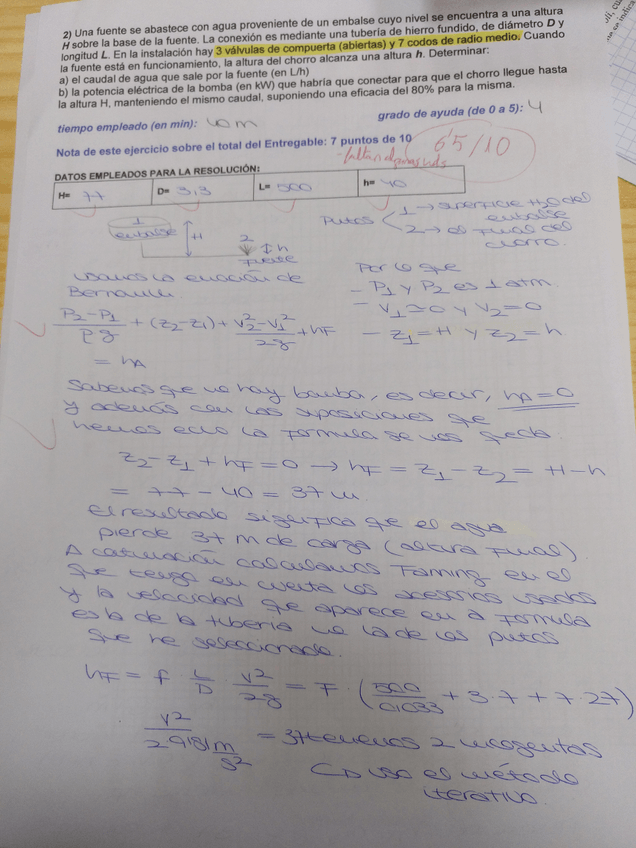 2) Una fuente se abastece con agua proveniente de un embalse cuyo nivel se encuentra a una altura
H sobre la base de la fuente. La conexión es mediante una tubería de hierro fundido, de diámetro D y
longitud L. En la instalación hay 3 válvulas de compuerta (abiertas) y 7 codos de radio medio. Cuando
la fuente está en funcionamiento, la altura del chorro alcanza una altura h. Determinar:
a) el caudal de agua que sale por la fuente (en L/h)
b) la potencia eléctrica de la bomba (en kW) que habría que conectar para que el chorro llegue hasta
la altura H, manteniendo el mismo caudal, suponiendo una eficacia del 80% para la misma.
tiempo empleado (en min): 40m grado de ayuda (de 0 a 5): 4
Nota de este ejercicio sobre el total del Entregable: 7 puntos de 10
6'5/10
- faltan algunas uds
DATOS EMPLEADOS PARA LA RESOLUCIÓN:
H= 77 D= 3,3 L= 500 h= 40
1
embalse
H
2
h
Fuente
Putos
1 → superficie H2O del
embalse
2 → al final del
chorro.
usamos la ecuación de
Bernoulli.
P2-P1/ρg + (z2-z1) + v2²-v1²/2g + hF
= hA
Por lo que
- P1 y P2 es 1 atm.
- v1≃0 y v2=0
- z1=H y z2=h
Sabemos que no hay bomba, es decir, hA=0
y además con las suposiciones que
hemos echo la formula se nos queda
z2-z1+hF=0 → hF = z1-z2 = H-h
= 77-40 = 37 m.
El resultado significa que el agua
pierde 37 m de carga (altura final)
A continuación calculamos Fanning en el
que tengo en cuenta los acesorios usados
y la velocidad que aparece en a formula
es la de la tuberia no la de los putos
que he seleccionado.
hF = f L/D · v²/2g = F · (500/0'033 + 3·7 + 7·27)
v²/2·9'81 m/s² = 37 tenemos 2 incognitas
↳ uso el método
iterativo.